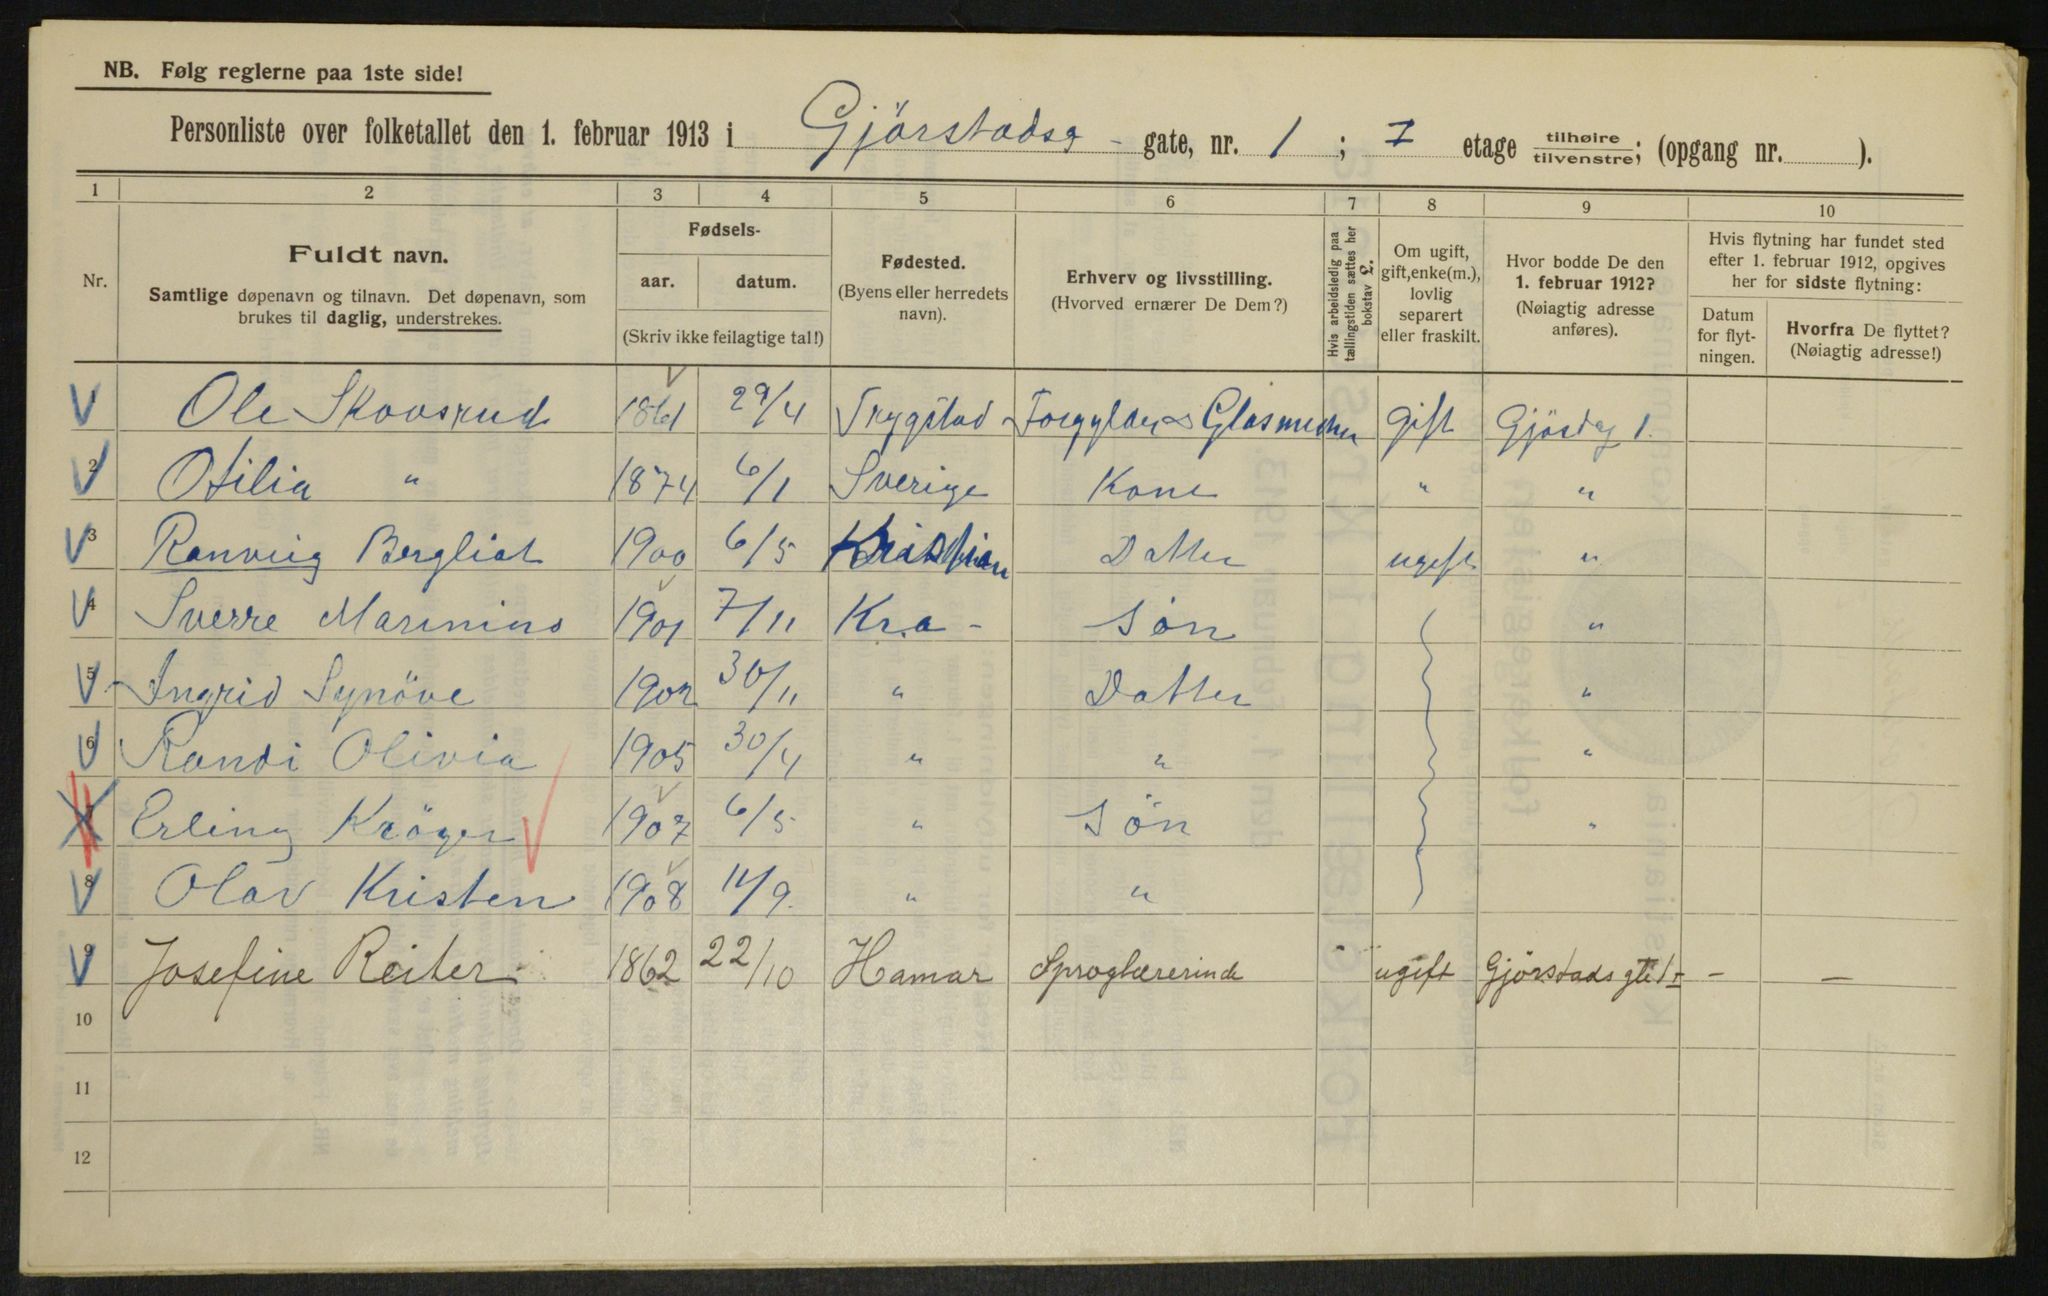 NB. Følg reglerne paa 1ste side!
Personliste over folketallet den 1. februar 1913 i Gjörstadsg - gate, nr. 1 ; I etage tilhøire tilvenstre; (opgang nr. ).
1 2 3 4 5 6 7 8 9 10
Nr.
Fuldt navn.
Samtlige døpenavn og tilnavn. Det døpenavn, som
brukes til daglig, understrekes.
Fødsels-
aar. datum.
(Skriv ikke feilagtige tal!)
Fødested.
(Byens eller herredets
navn).
Erhverv og livsstilling.
(Hvorved ernærer De Dem?)
Hvis arbeidsledig paa
tællingstiden sættes her
bokstav L.
Om ugift,
gift, enke(m.),
lovlig
separert
eller fraskilt.
Hvor bodde De den
1. februar 1912?
(Nøiagtig adresse
anføres).
Hvis flytning har fundet sted
efter 1. februar 1912, opgives
her for sidste flytning:
Datum
for flyt-
ningen.
Hvorfra De flyttet?
(Nøiagtig adresse!)
Ole Skovsrud 1861 29/4 Trygstad Forgylder & gift 1
2 Otilia " 1874 6/1 Sverige Kone " "
3 Ranveig Bergliot 1900 6/5 Kristian Datter ugift "
4 Sverre Marinius 1901 7/11 Kra - Søn "
5 Ingrid Synöve 1902 30/11 " Datter "
6 Randi Olivia 1905 30/4 " " "
7 Erling Kröger 1907 6/5 " Søn "
8 Olav Kristen 1908 11/9 " "
9 Josefine Reiter 1862 22/10 Hamar Sproglærerinde ugift Gjörstads gt - -
10
11
12